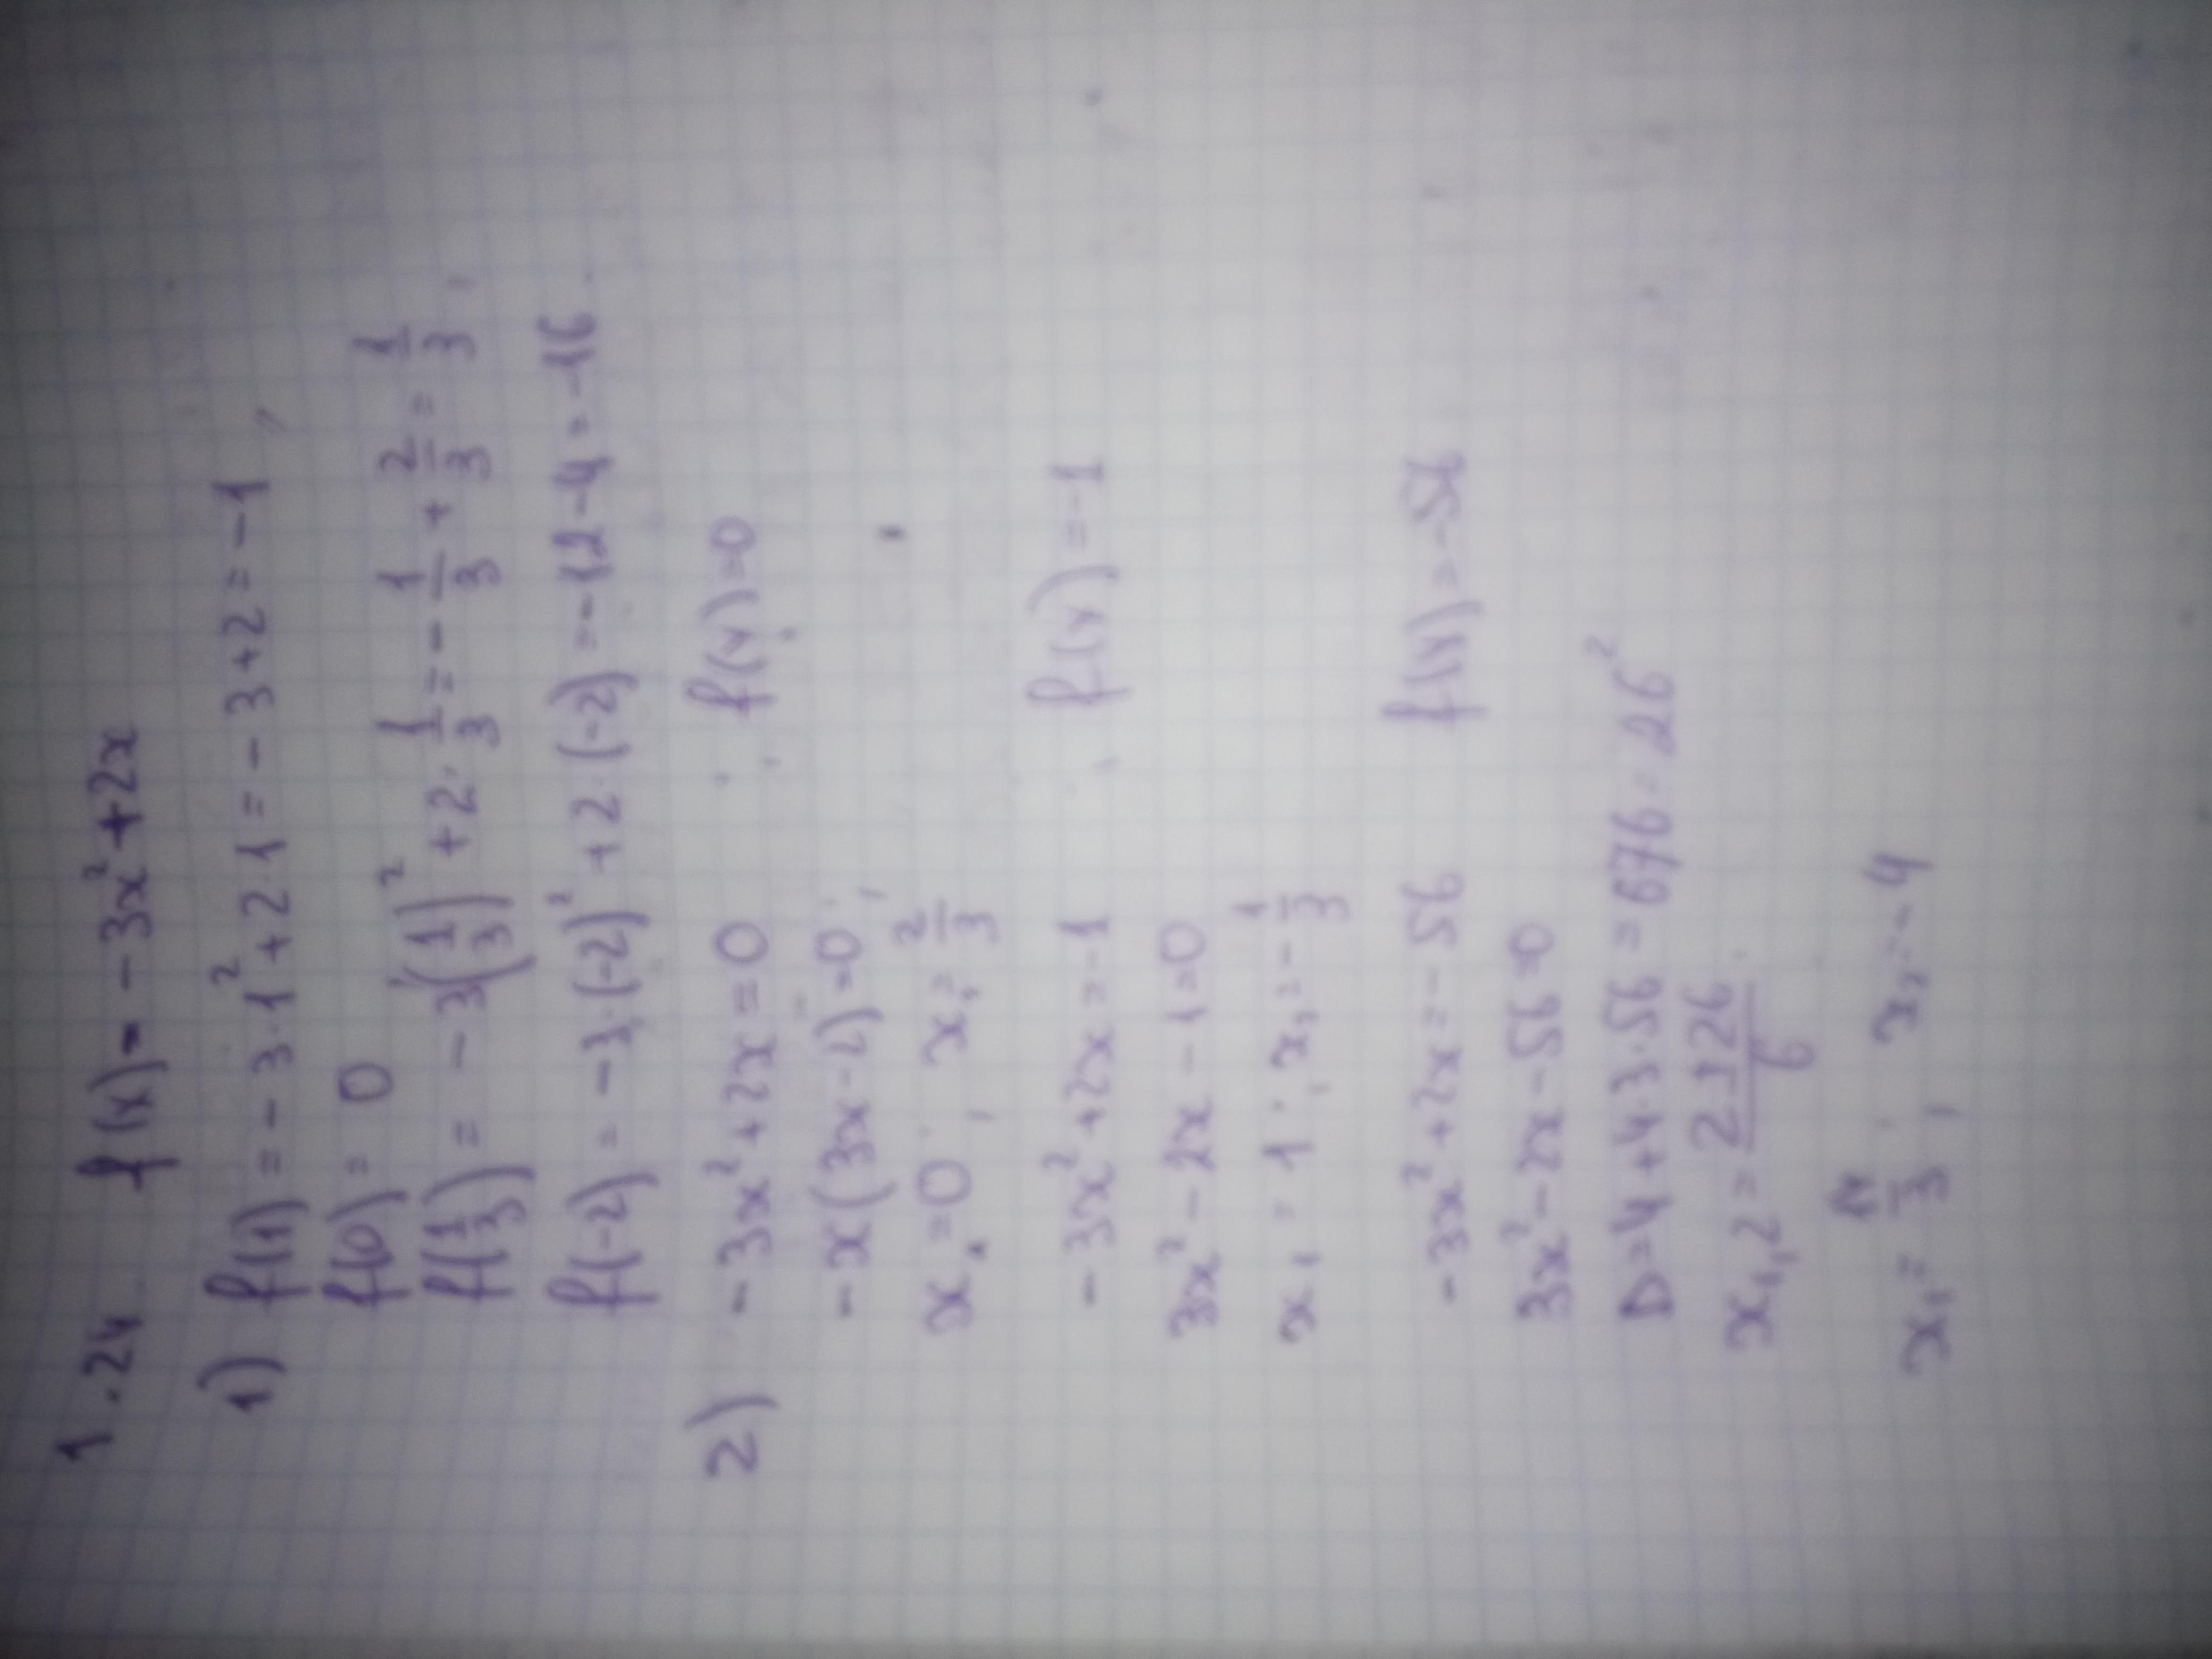 1.24 f(x) = -3x² + 2x
1) f(1) = -3·1² + 2·1 = -3+2 = -1,
f(0) = 0
f(1/3) = -3(1/3)² + 2·1/3 = -1/3 + 2/3 = 1/3,
f(-2) = -3·(-2)² + 2·(-2) = -12-4 = -16.
2) -3x² + 2x = 0, f(x)=0
-x(3x-2)=0,
x₁=0, x₂=2/3
-3x²+2x=-1, f(x)=-1
3x²-2x-1=0
x₁=1, x₂=-1/3
-3x²+2x=-56 f(x)=-56
3x²-2x-56=0
D=4+4·3·56=676=26²
x₁,₂=2±26/6,
x₁=14/3, x₂=-4